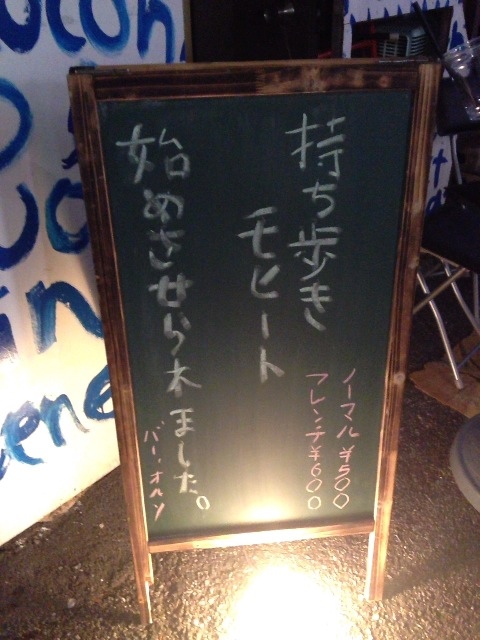 持ち歩き
モヒート
始めさせられました。
ノーマル ¥500
フレンチ¥600
バー・オルソ